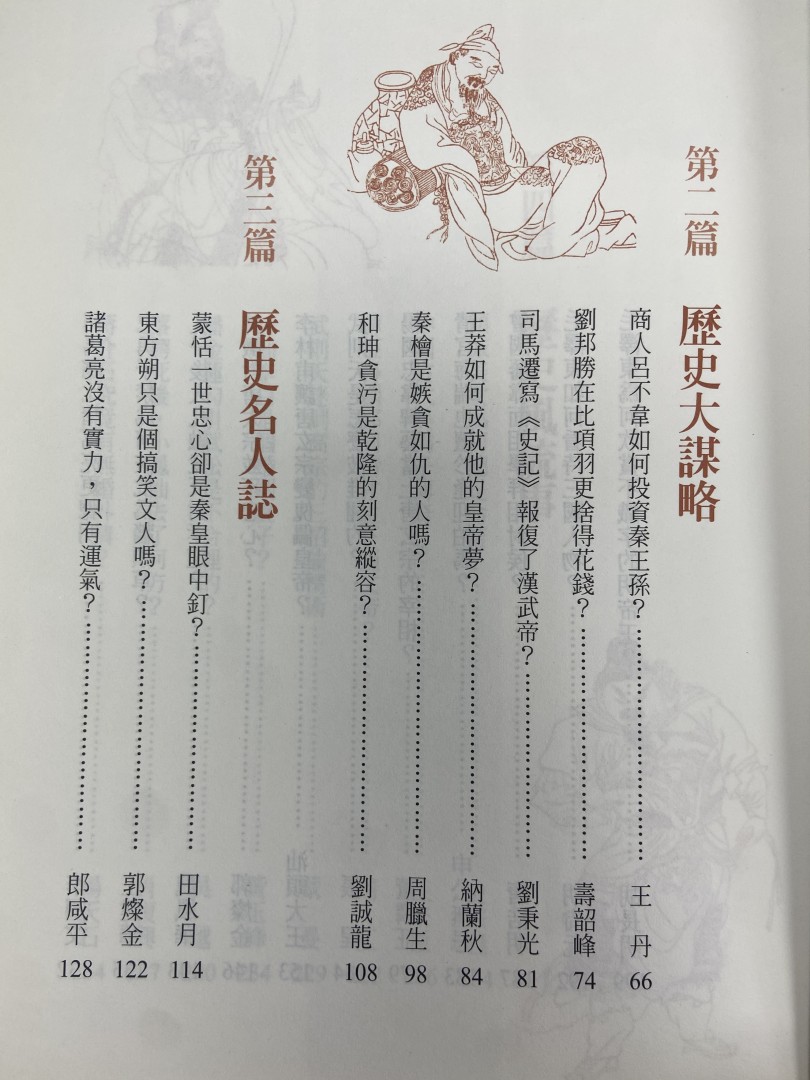 第二篇 歷史大謀略
商人呂不韋如何投資秦王孫？……王 丹 66
劉邦勝在比項羽更捨得花錢？……壽韶峰 74
司馬遷寫《史記》報復了漢武帝？……劉秉光 81
王莽如何成就他的皇帝夢？……納蘭秋 84
秦檜是嫉貪如仇的人嗎？……周臘生 98
和珅貪污是乾隆的刻意縱容？……劉誠龍 108
第三篇 歷史名人誌
蒙恬一世忠心卻是秦皇眼中釘？……田水月 114
東方朔只是個搞笑文人嗎？……郭燦金 122
諸葛亮沒有實力，只有運氣？……郎咸平 128